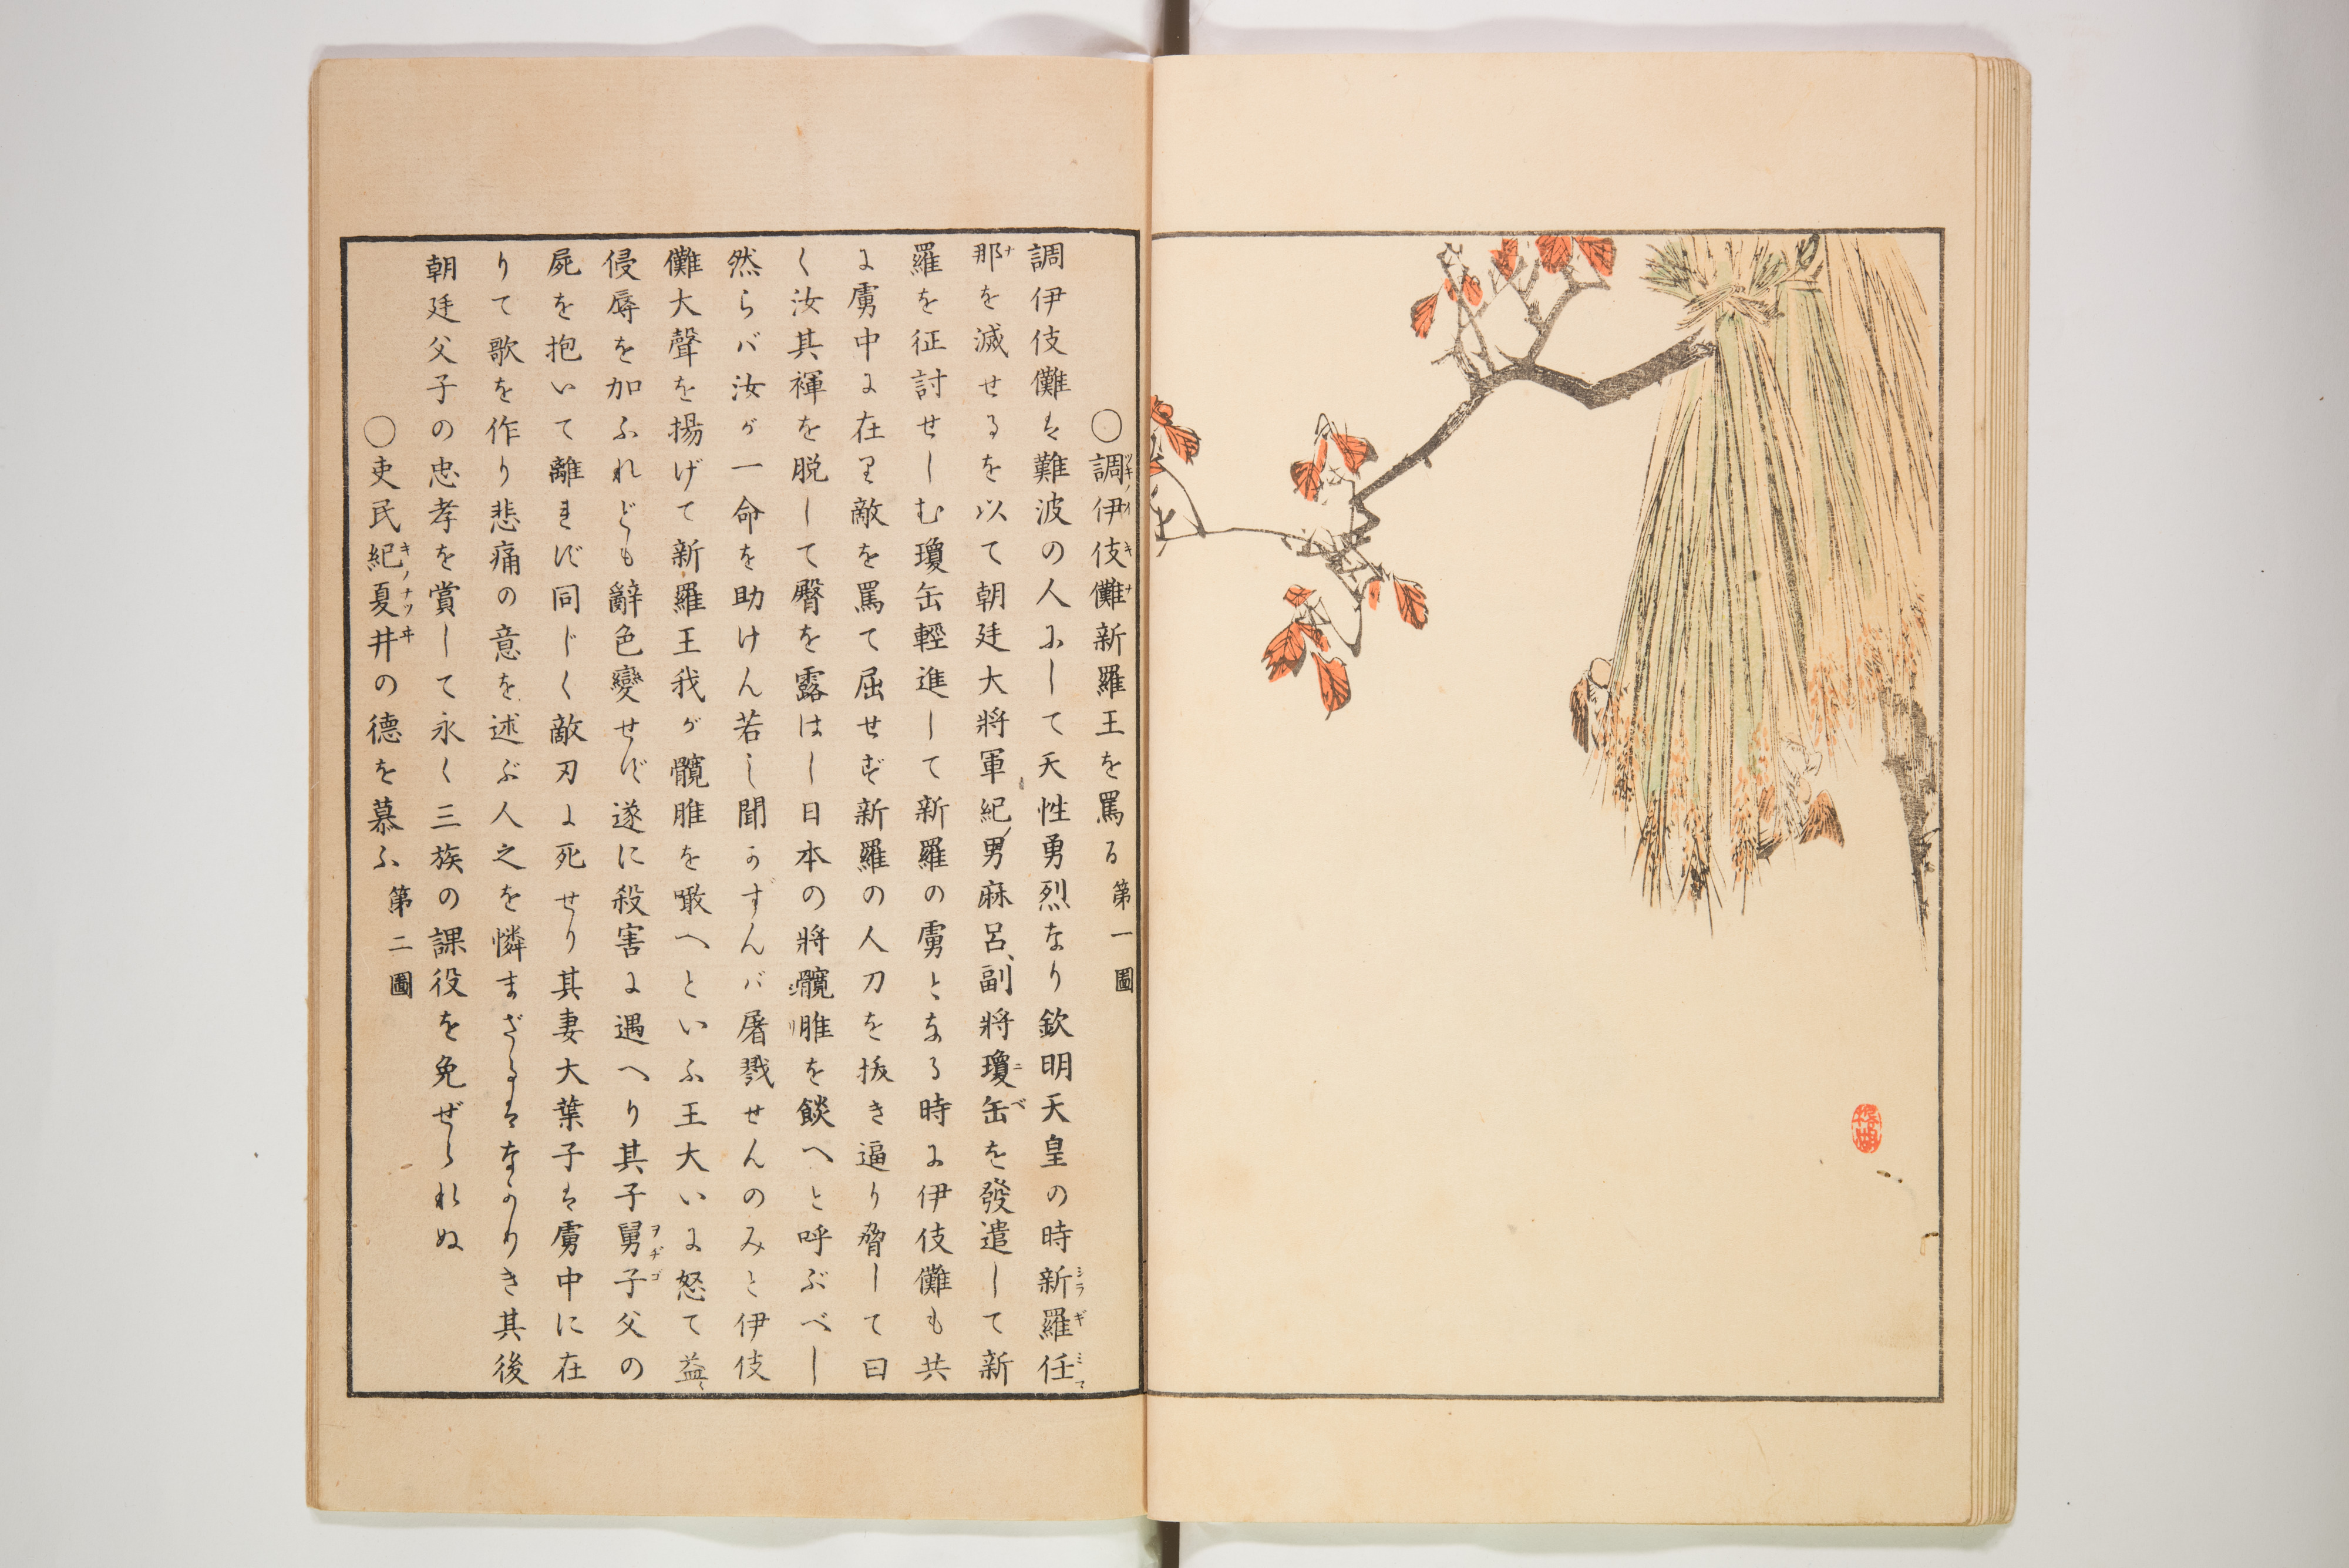 ○調伊伎儺新羅王を罵る 第一圖
調伊伎儺は難波の人にして天性勇烈なり欽明天皇の時新羅任
那を滅せるを以て朝廷大將軍紀男麻呂、副將瓊缶を發遣して新
羅を征討せしむ瓊缶輕進して新羅の虜となる時に伊伎儺も共
に虜中に在り敵を罵て屈せず新羅の人刀を拔き逼り脅して曰
く汝其褌を脱して臀を露はし日本の將髖脽を餤へと呼ぶべし
然らバ汝が一命を助けん若し聞かずんバ屠戮せんのみと伊伎
儺大聲を揚げて新羅王我が髖脽を噉へといふ王大いに怒て益〻
侵辱を加ふれども辭色變せず遂に殺害に遇へり其子舅子父の
屍を抱いて離れず同じく敵刃に死せり其妻大葉子は虜中に在
りて歌を作り悲痛の意を述ぶ人之を憐まざるはなかりき其後
朝廷父子の忠孝を賞して永く三族の課役を免ぜられぬ
○吏民紀夏井の德を慕ふ 第二圖